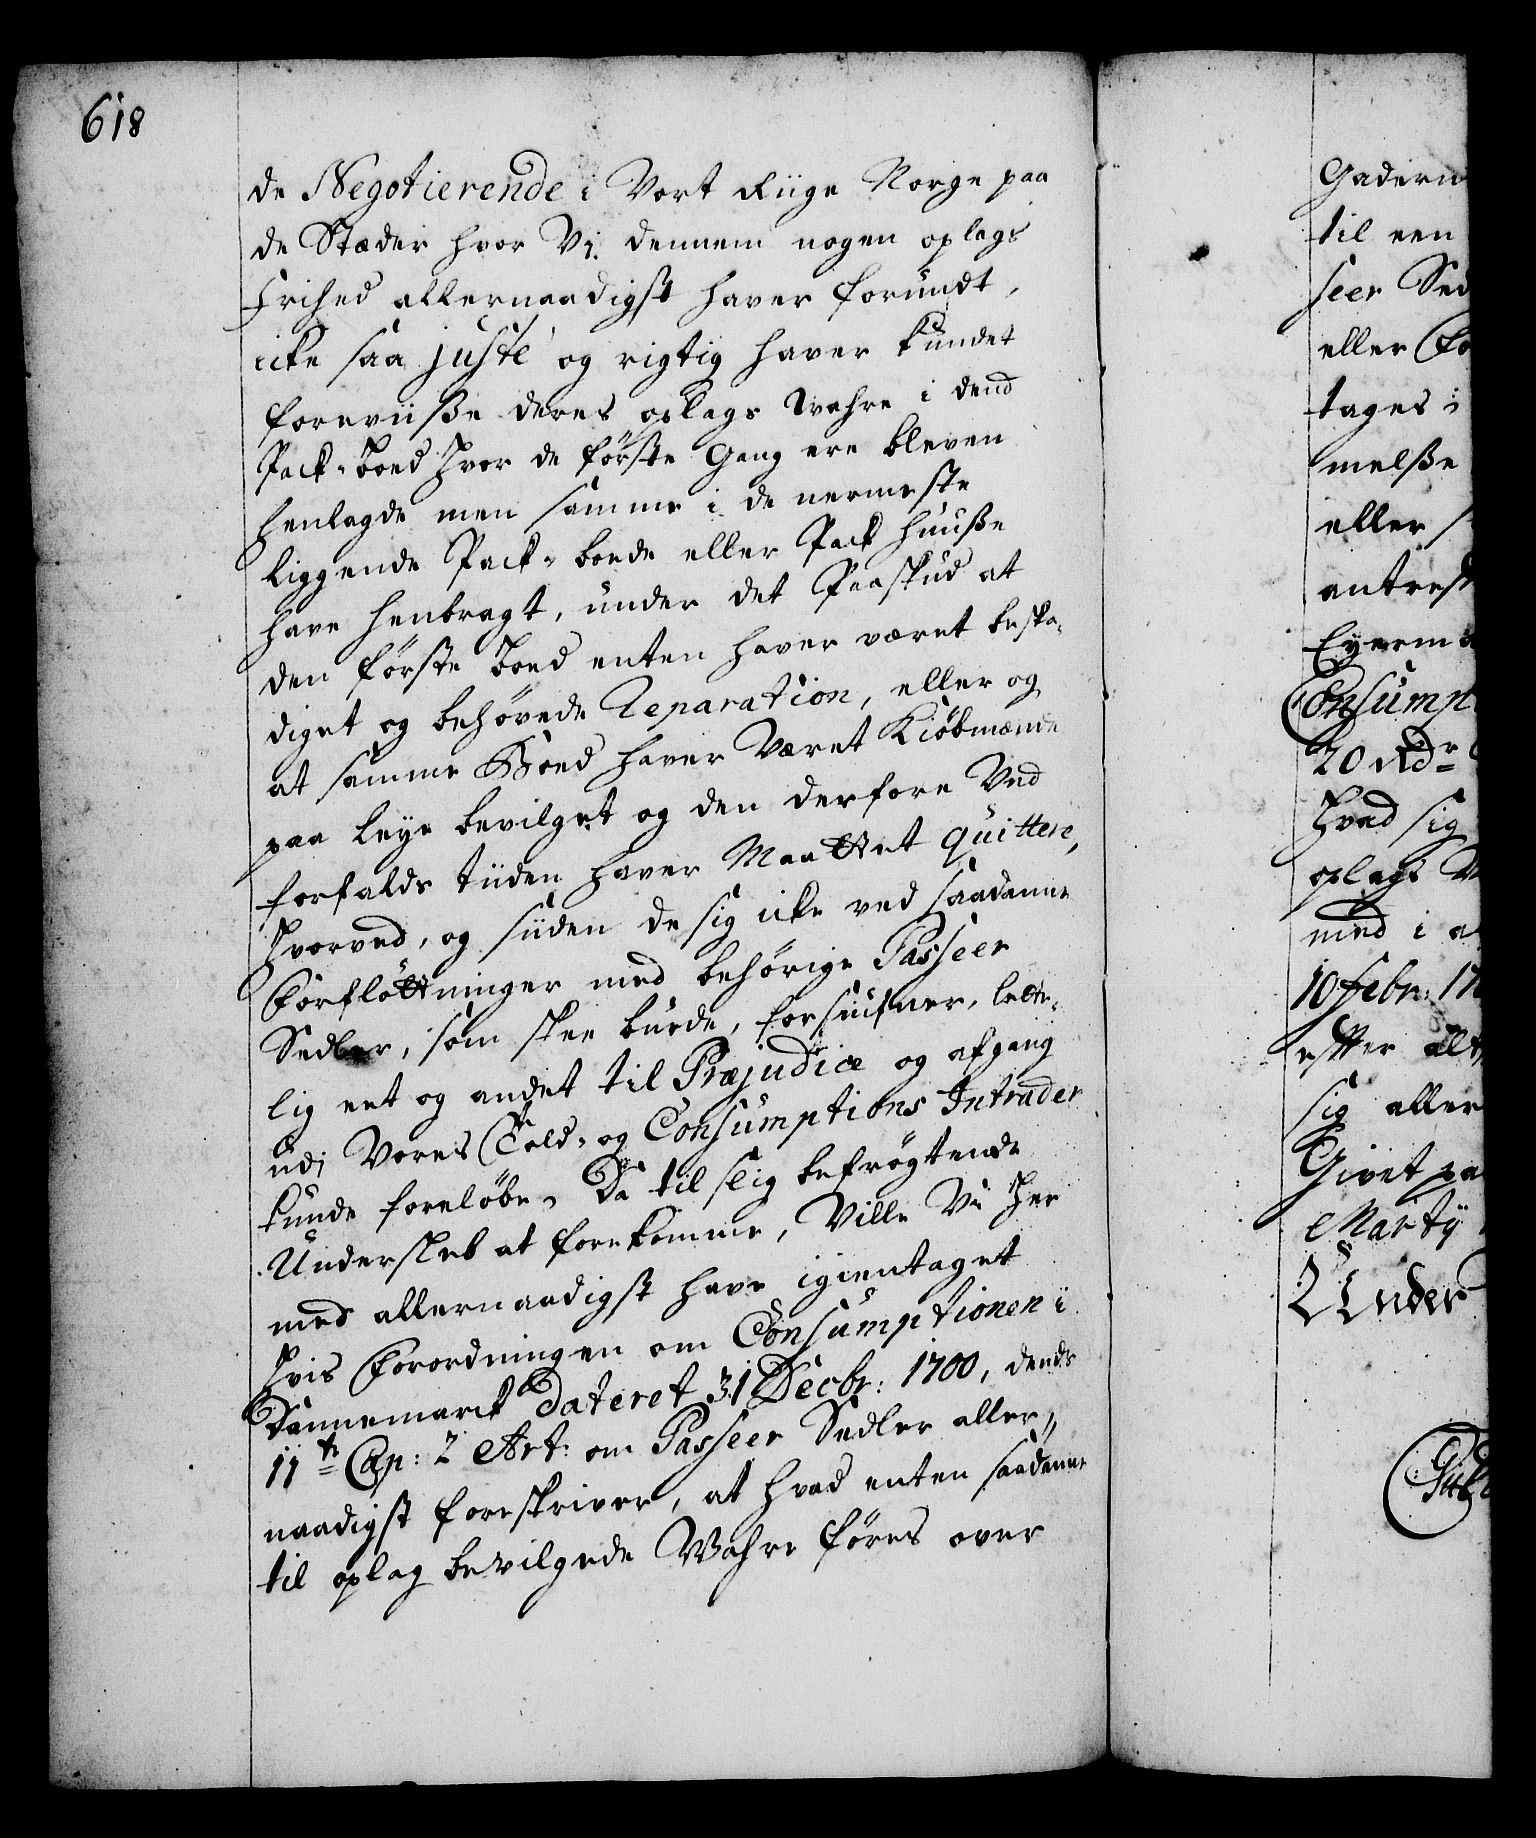 618
de Negotierende i Vort Riige Norge paa
de Stæder hvor Vj dennem nogen oplags
Frihed allernaadigst haver forundt,
icke saa juste og rigtig haver kundet
foreviiße deres oplags Wahre i dend
Pack-boed hvor de første Gang ere bleven
henlagde men samme i de nermeste
liggende Pack-boede eller Pack huuße
have henbragt, under det Paaskud at
den første boed enten haver været beska-
diget og behøvede Reparation, eller og
at samme Boed haver Været Kiøbmænd
paa leye bevilget og den derfore Ved
forfalds tiiden haver Maattet quittere,
hvorved, og siiden de sig icke ved saadanne
Forfløttninger med behørige Passeer
Sedler, som skee burde, forsiufner, lette-
lig eet og andet til Præjudice og afgang
udj Vores Told- og Consumptions Intrader
kunde foreløbe, Da til slig befrøgtende
Undersleb at forekomme, Ville Vi her
med allernaadigst have igientaget
hvis Forordningen om Consumptionen i
Dannemarck Dateret 31 Decbr: 1700, dends
11te Cap: 2 Art: om Passeer Sedler aller,,
naadigst foreskriver, at hvad enten saadanne
til oplag bevilgede Wahre føres over
Gadern
til een
seer Sed
eller Fo
tages i
melße
eller
antreff
Eyerm
Consumpt
20 Rdr
hvad sig
oplags
med i a
10 Febr: 17
efter alt
sig aller
Givet pa
Martÿ
Under